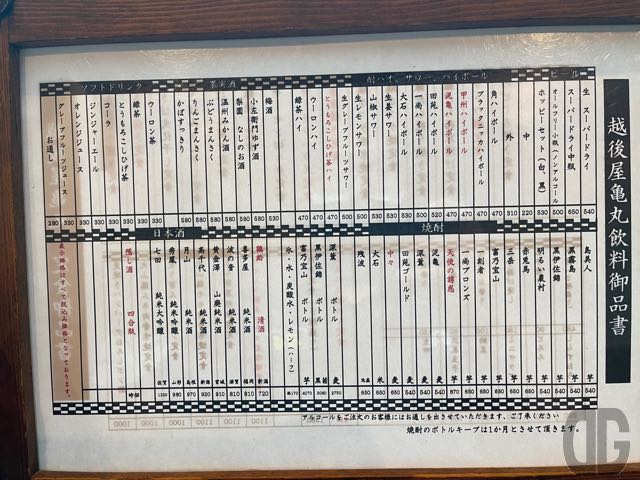 越後屋亀丸飲料御品書
ビール
生 スーパードライ 540
スーパードライ中瓶 650
オールフリー小瓶（ノンアルコール） 500
ホッピーセット（白、黒） 530
中 220
外 310
酎ハイ、サワー、ハイボール
角ハイボール 430
ブラックニッカハイボール 470
甲州ハイボール 470
泥亀ハイボール 470
田苑ハイボール 500
一尚ハイボール 500
大石ハイボール 500
生姜サワー 500
山椒サワー 500
生レモンサワー 500
生グレープフルーツサワー 500
とうもろこしひげ茶ハイ 470
ウーロンハイ 470
緑茶ハイ 470
果実酒
梅酒 530
小左衛門ゆず酒 580
梨園 なしのお酒 580
温州みかん酒 580
ぶどうまんさく 580
りんごまんさく 580
かぼすっきり 580
ソフトドリンク
ウーロン茶 330
緑茶 330
とうもろこしひげ茶 330
コーラ 330
ジンジャーエール 330
オレンジジュース 330
グレープフルーツジュース 330
お通し 280
焼酎
島美人 芋 540
黒霧島 芋 540
黒伊佐錦 芋 540
明るい農村 芋 650
赤兎馬 芋 650
三岳 芋 650
富乃宝山 芋 650
一刻者 芋 650
一尚ブロンズ 芋 650
天使の誘惑 芋 870
泥亀 麦 540
深薫 麦 540
田苑ゴールド 麦 540
中々 麦 650
大石 米 650
残波 泡盛 650
深薫 ボトル 麦 2750
黒伊佐錦 ボトル 芋 3080
富乃宝山 ボトル 芋 4070
氷・水・炭酸水・レモン（ハーフ） 各170
日本酒
鶴齢 清酒 新潟 720
喜多屋 純米酒 福岡 810
波の音 純米酒 910
黄金澤 山廃純米酒 宮城 910
高千代 純米酒 新潟 920
月山 純米酒 島根 970
秀鳳 純米吟醸 山形 980
七田 純米大吟醸 佐賀 1320
隠し酒 四合瓶 時価
表示価格はすべて税込み価格となっております。
アルコールをご注文のお客様にはお通しを出させていただきます、ご了承ください
焼酎のボトルキープは1か月とさせて頂きます。